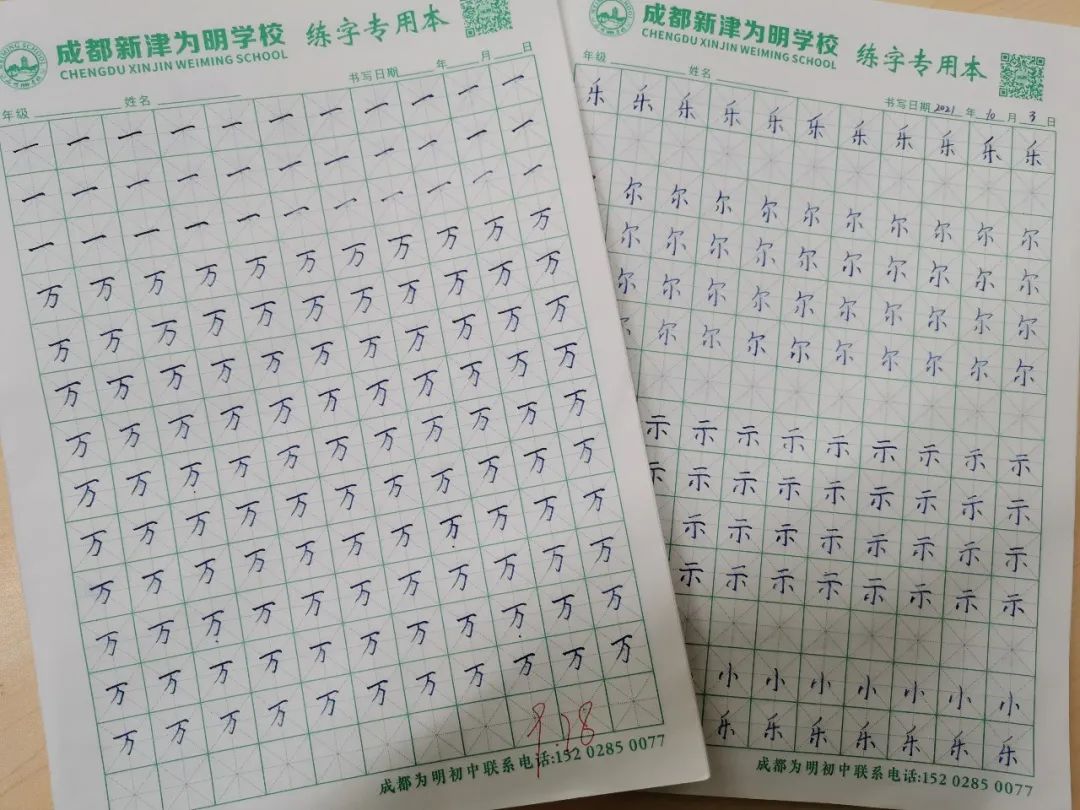 成都新津为明学校 练字专用本
CHENGDU XINJIN WEIMING SCHOOL
年级 姓名 书写日期 年 月 日
一一一一一一一一一一一
一一一一一一一一一一一
一一一一一一一一一一一
万万万万万万万万万万万
万万万万万万万万万万万
万万万万万万万万万万万
万万万万万万万万万万万
万万万万万万万万万万万
万万万万万万万万万万万
万万万万万万万万万万万
万万万万万万万万万万万
万万万万万万万万万万万
万万万万万万万万万万万
成都为明初中联系电话:152 0285 0077
成都新津为明学校 练字专用本
CHENGDU XINJIN WEIMING SCHOOL
年级 姓名 书写日期 2021 年 10 月 3 日
乐乐乐乐乐乐乐乐乐乐乐
尔尔尔尔尔尔尔尔尔尔
尔尔尔尔尔尔尔尔尔尔
尔尔尔尔尔尔尔尔尔尔
尔尔尔尔尔尔尔尔尔
示示示示示示示示示
示示示示示示示示示
示示示示示示示示
示示示示示示示示
小小小小小小小
乐乐乐乐乐乐乐
成都为明初中联系电话:152 0285 0077